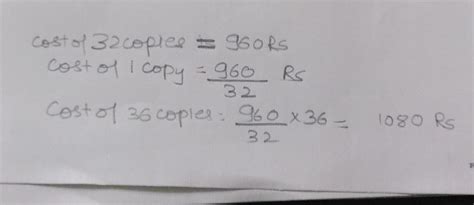 cost of 32 copies = 960 Rs
cost of 1 copy = 960/32 Rs
Cost of 36 copies: 960/32 × 36 = 1080 Rs